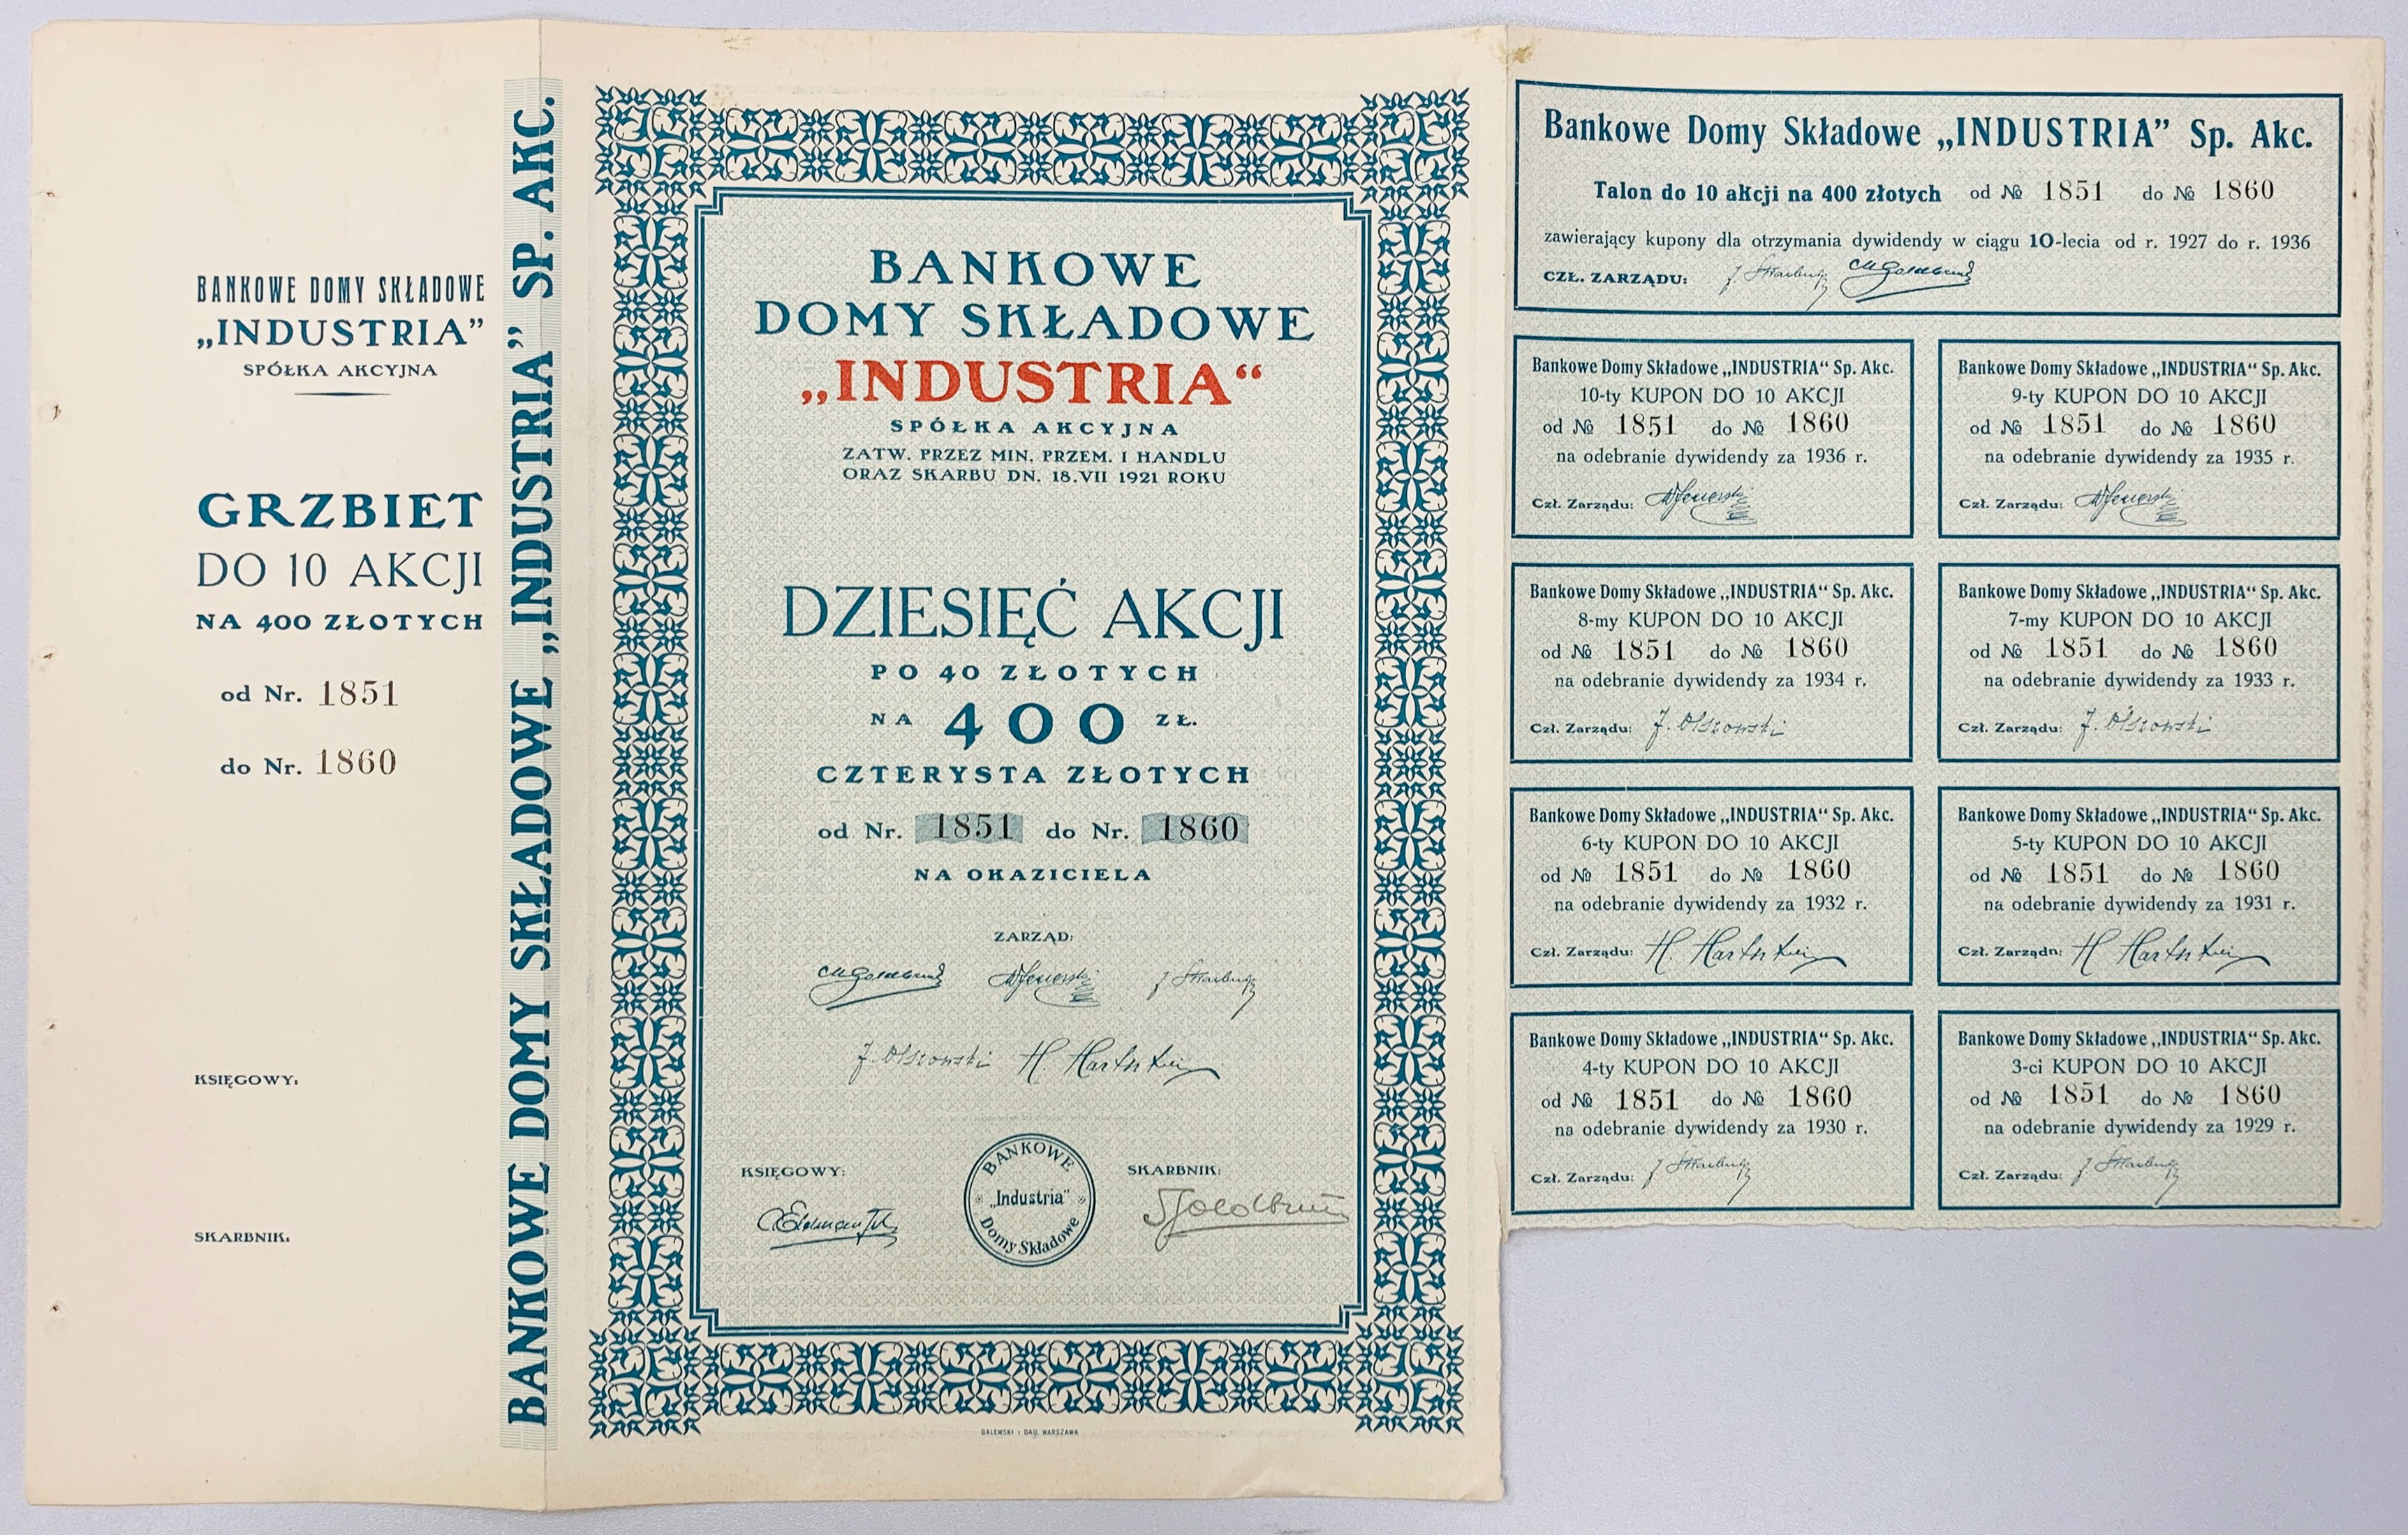 BANKOWE DOMY SKŁADOWE
„INDUSTRIA”
SPÓŁKA AKCYJNA
GRZBIET
DO 10 AKCJI
NA 400 ZŁOTYCH
od Nr. 1851
do Nr. 1860
KSIĘGOWY:
SKARBNIK:
BANKOWE DOMY SKŁADOWE „INDUSTRIA” SP. AKC.
BANKOWE
DOMY SKŁADOWE
„INDUSTRIA“
SPÓŁKA AKCYJNA
ZATW. PRZEZ MIN. PRZEM. I HANDLU
ORAZ SKARBU DN. 18.VII 1921 ROKU
DZIESIĘĆ AKCJI
PO 40 ZŁOTYCH
NA 400 ZŁ.
CZTERYSTA ZŁOTYCH
od Nr. 1851 do Nr. 1860
NA OKAZICIELA
ZARZĄD:
J. Olszowski
KSIĘGOWY:
SKARBNIK:
BANKOWE
„Industria”
Domy Składowe
GALEWSKI i DAU, WARSZAWA
Bankowe Domy Składowe „INDUSTRIA” Sp. Akc.
Talon do 10 akcji na 400 złotych od № 1851 do № 1860
zawierający kupony dla otrzymania dywidendy w ciągu 10-lecia od r. 1927 do r. 1936
CZŁ. ZARZĄDU:
Bankowe Domy Składowe „INDUSTRIA“ Sp. Akc.
10-ty KUPON DO 10 AKCJI
od № 1851 do № 1860
na odebranie dywidendy za 1936 r.
Czł. Zarządu:
Bankowe Domy Składowe „INDUSTRIA“ Sp. Akc.
9-ty KUPON DO 10 AKCJI
od № 1851 do № 1860
na odebranie dywidendy za 1935 r.
Czł. Zarządu:
Bankowe Domy Składowe „INDUSTRIA“ Sp. Akc.
8-my KUPON DO 10 AKCJI
od № 1851 do № 1860
na odebranie dywidendy za 1934 r.
Czł. Zarządu: J. Olszowski
Bankowe Domy Składowe „INDUSTRIA“ Sp. Akc.
7-my KUPON DO 10 AKCJI
od № 1851 do № 1860
na odebranie dywidendy za 1933 r.
Czł. Zarządu: J. Olszowski
Bankowe Domy Składowe „INDUSTRIA“ Sp. Akc.
6-ty KUPON DO 10 AKCJI
od № 1851 do № 1860
na odebranie dywidendy za 1932 r.
Czł. Zarządu:
Bankowe Domy Składowe „INDUSTRIA“ Sp. Akc.
5-ty KUPON DO 10 AKCJI
od № 1851 do № 1860
na odebranie dywidendy za 1931 r.
Czł. Zarządn:
Bankowe Domy Składowe „INDUSTRIA“ Sp. Akc.
4-ty KUPON DO 10 AKCJI
od № 1851 do № 1860
na odebranie dywidendy za 1930 r.
Czł. Zarządu:
Bankowe Domy Składowe „INDUSTRIA“ Sp. Akc.
3-ci KUPON DO 10 AKCJI
od № 1851 do № 1860
na odebranie dywidendy za 1929 r.
Czł. Zarządu: